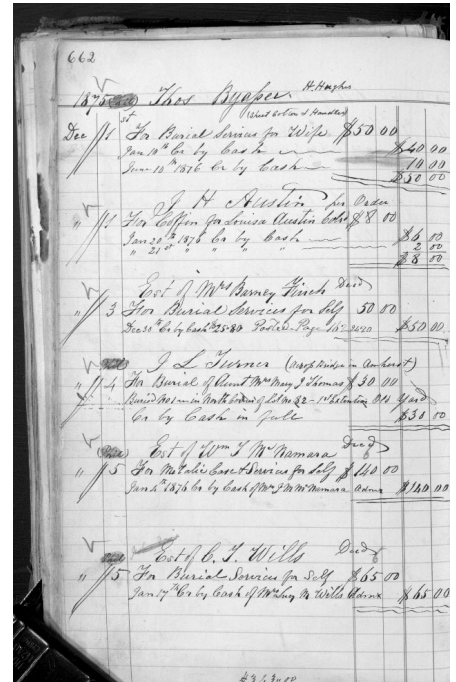 662
1875 Thos Byasser H. Hughes
(West Cotton & Handles)
Dec 1st For Burial Services for Wife $50 00
Jan 10th Cr by Cash $40 00
June 10th 1876 Cr by Cash 10 00
$50 00
J H Austin per Order
" 1 For Coffin for Louisa Austin Cold $8 00
Jan 20th 1876 Cr by Cash $6 00
" 21st " " " " 2 00
$8 00
Est of Mrs Barney Finch Decd
" 3 For Burial Services for Self 50 00
Dec 30th Cr by Cash $25.80 Posted Page $50 00
J L Turner (across Bridge in Amherst)
" 4 For Burial of Aunt Mrs Mary J Thomas $30 00
Buried No 1 in North of Lot No 82 - 1st Extention Old Yard
Cr by Cash in full $30 00
Paid Est of Wm T McNamara Decd
" 5 For Metalic Case & Services for Self $140 00
Jan 4th 1876 Cr by Cash of Mrs J M McNamara Admx $140 00
Paid Est of C. T. Wills Decd
" 5 For Burial Services for Self $65 00
Jan 17th Cr by Cash of Mrs Lucy M Wills Admx $65 00